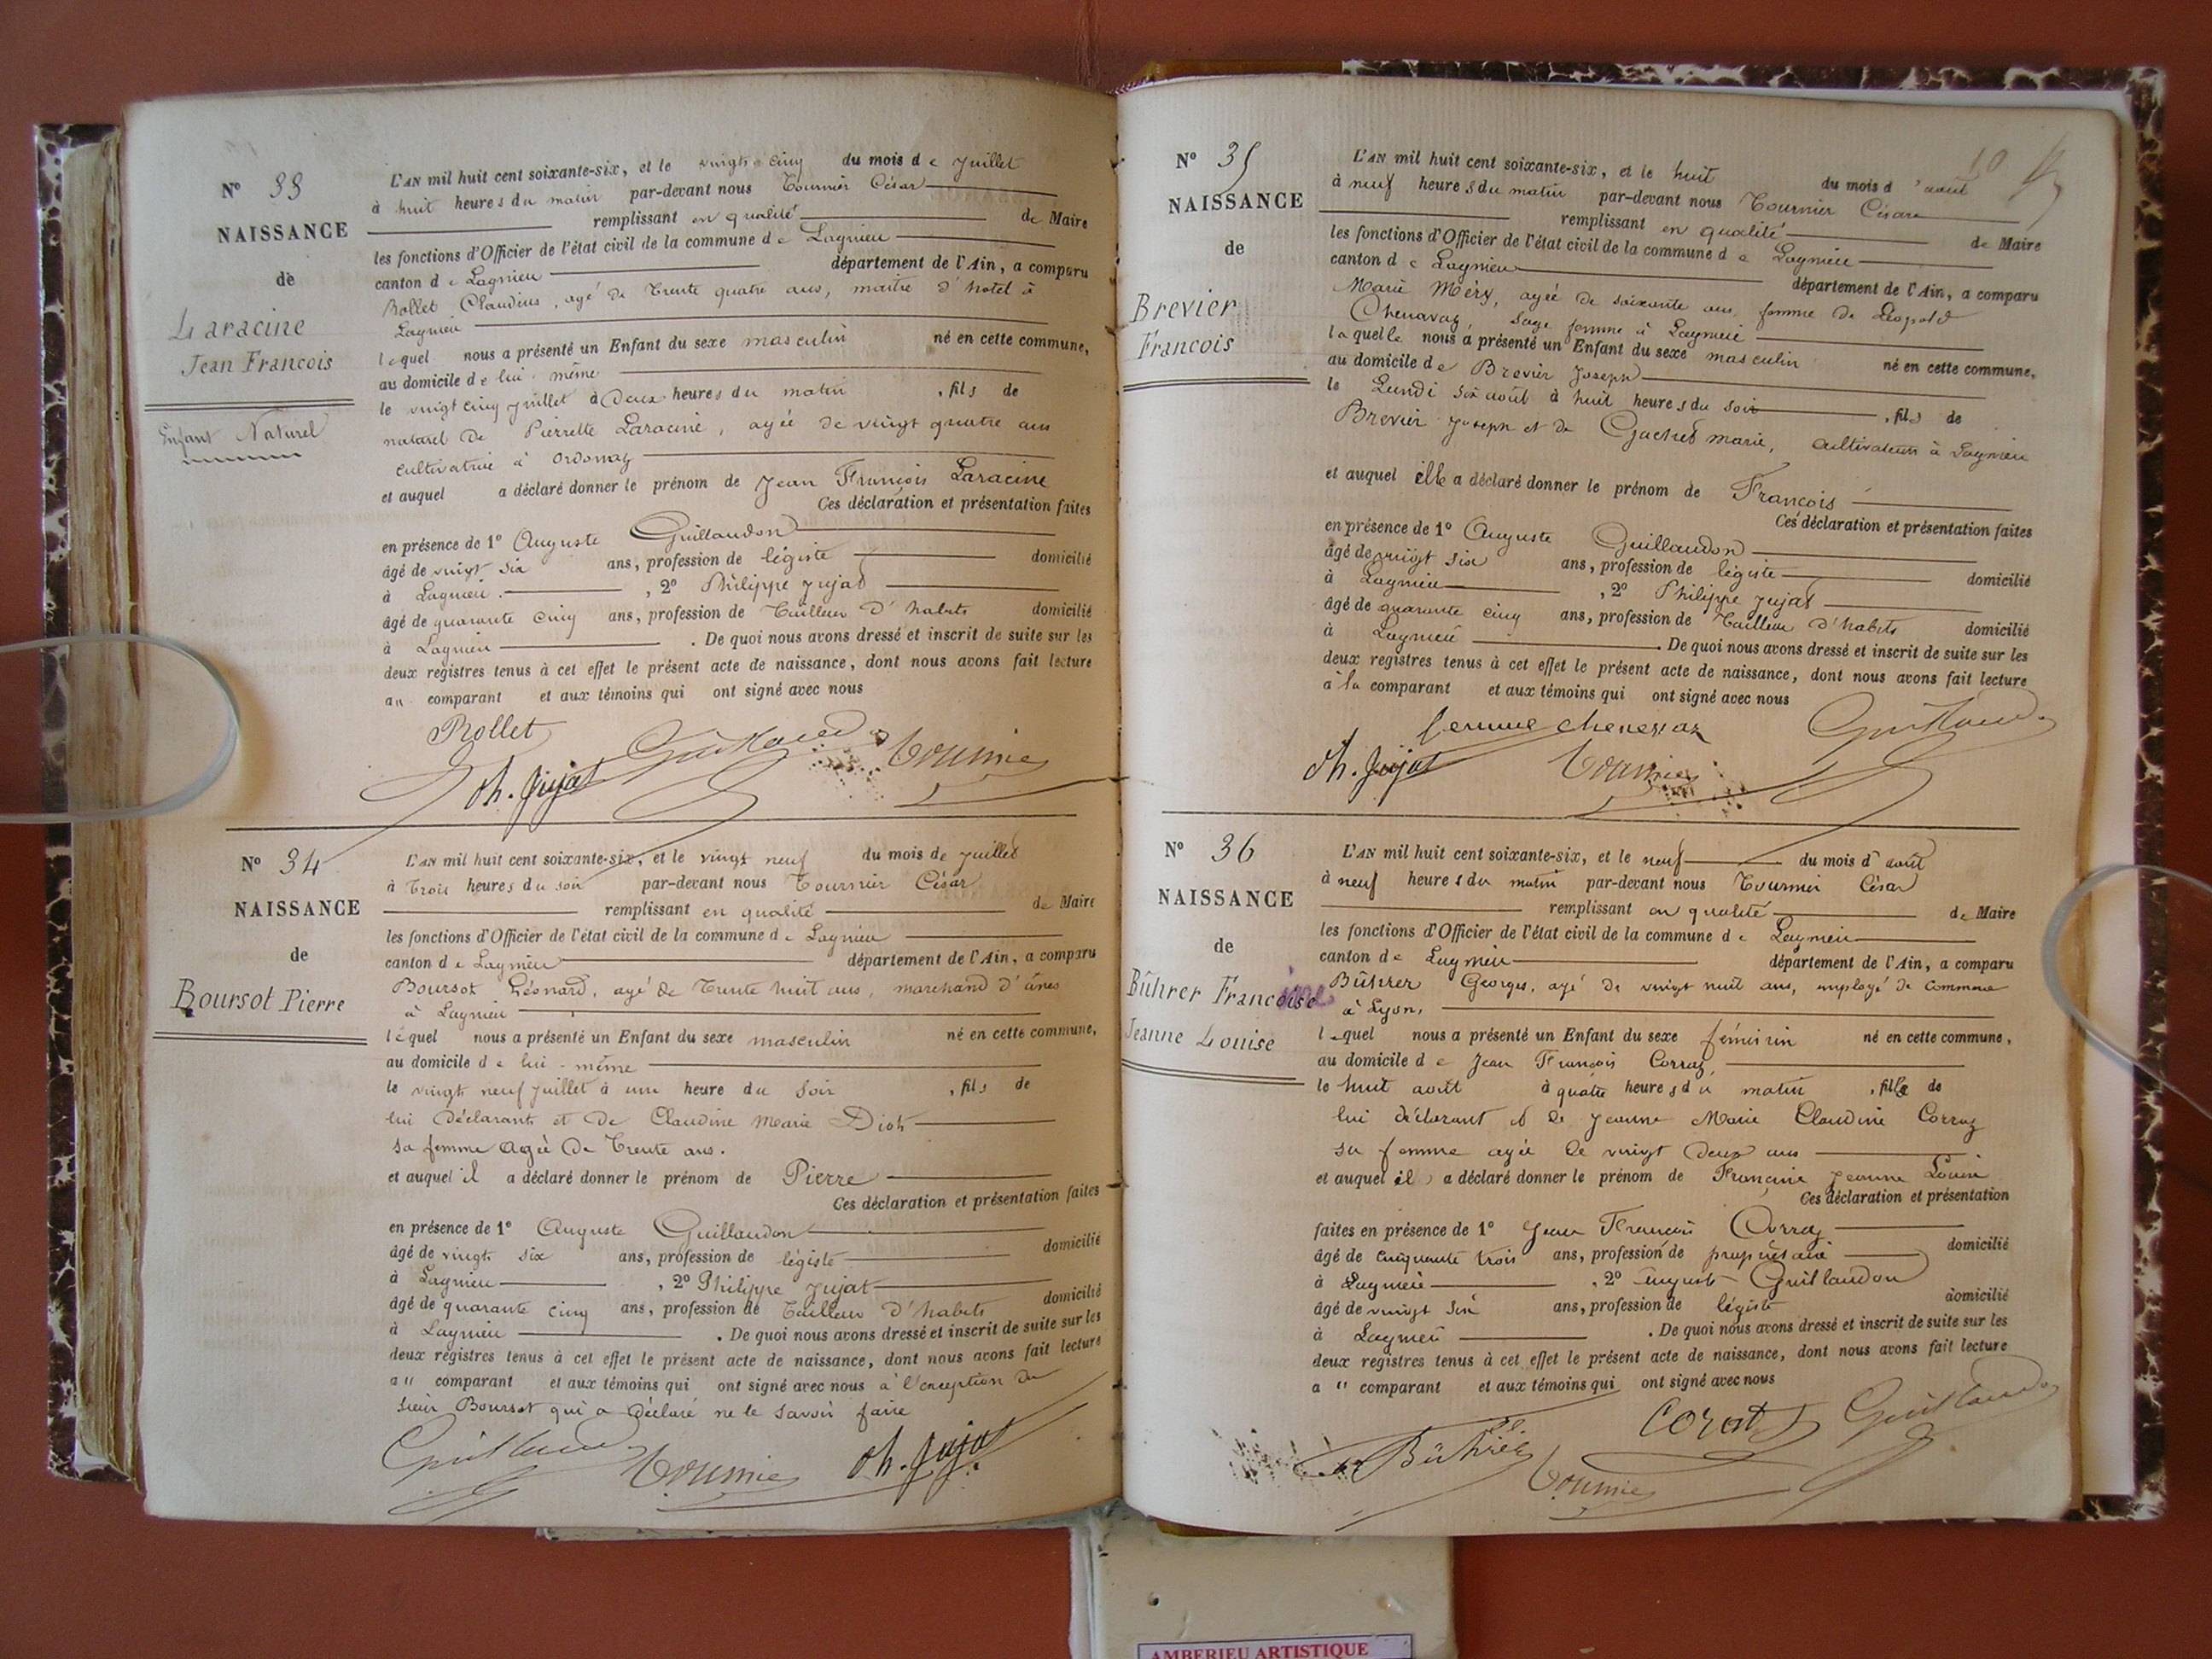 N° 33
NAISSANCE
de
Laracine
Jean Francois
Enfant Naturel
L'AN mil huit cent soixante-six, et le vingt cinq du mois de Juillet
à huit heures du matin par-devant nous Tournier César
remplissant en qualité de Maire
les fonctions d'Officier de l'état civil de la commune de Lagnieu
canton de Lagnieu département de l'Ain, a comparu
Rollet Claudius, agé de Trente quatre ans, maitre d'hotel à
Lagnieu
lequel nous a présenté un Enfant du sexe masculin né en cette commune,
au domicile de lui-même
le vingt cinq juillet à Deux heures du matin, fils de
naturel de Pierrette Laracine, agée de vingt quatre ans
cultivatrice à Ordonnaz
et auquel a déclaré donner le prénom de Jean François Laracine
Ces déclaration et présentation faites
en présence de 1° Auguste Guillaudon
âgé de vingt six ans, profession de légiste domicilié
à Lagnieu, 2° Philippe Jujat
âgé de quarante cinq ans, profession de Tailleur d'habits domicilié
à Lagnieu. De quoi nous avons dressé et inscrit de suite sur les
deux registres tenus à cet effet le présent acte de naissance, dont nous avons fait lecture
au comparant et aux témoins qui ont signé avec nous
Rollet
Ph. Jujat
Tournier
N° 34
NAISSANCE
de
Boursot Pierre
L'AN mil huit cent soixante-six, et le vingt neuf du mois de Juillet
à Trois heures du soir par-devant nous Tournier César
remplissant en qualité de Maire
les fonctions d'Officier de l'état civil de la commune de Lagnieu
canton de Lagnieu département de l'Ain, a comparu
Boursot Léonard, agé de Trente huit ans, marchand d'ânes
à Lagnieu
lequel nous a présenté un Enfant du sexe masculin né en cette commune,
au domicile de lui-même
le vingt neuf juillet à une heure du soir, fils de
lui déclarant et de Claudine Marie Dioh
sa femme agée de Trente ans.
et auquel il a déclaré donner le prénom de Pierre
Ces déclaration et présentation faites
en présence de 1° Auguste Guillaudon
âgé de vingt six ans, profession de légiste domicilié
à Lagnieu, 2° Philippe Jujat
âgé de quarante cinq ans, profession de Tailleur d'habits domicilié
à Lagnieu. De quoi nous avons dressé et inscrit de suite sur les
deux registres tenus à cet effet le présent acte de naissance, dont nous avons fait lecture
au comparant et aux témoins qui ont signé avec nous à l'exception du
sieur Boursot qui a déclaré ne le savoir faire
Tournier Ph. Jujat
N° 35
NAISSANCE
de
Brevier
Francois
L'AN mil huit cent soixante-six, et le huit du mois d'août
à neuf heures du matin par-devant nous Tournier César
remplissant en qualité de Maire
les fonctions d'Officier de l'état civil de la commune de Lagnieu
canton de Lagnieu département de l'Ain, a comparu
Marie Méry, agée de soixante ans femme de Léopold
Chenavaz, sage femme à Lagnieu
laquelle nous a présenté un Enfant du sexe masculin né en cette commune,
au domicile de Brevier Joseph
le Lundi six août à huit heures du soir, fils de
Brevier Joseph et de Gachet marie, cultivateurs à Lagnieu
et auquel elle a déclaré donner le prénom de François
Ces déclaration et présentation faites
en présence de 1° Auguste Guillaudon
âgé de vingt six ans, profession de légiste domicilié
à Lagnieu, 2° Philippe Jujat
âgé de quarante cinq ans, profession de Tailleur d'habits domicilié
à Lagnieu. De quoi nous avons dressé et inscrit de suite sur les
deux registres tenus à cet effet le présent acte de naissance, dont nous avons fait lecture
à la comparant et aux témoins qui ont signé avec nous
femme chenavaz
Ph. Jujat Tournier
N° 36
NAISSANCE
de
Bührer Francoise
Jeanne Louise
L'AN mil huit cent soixante-six, et le neuf du mois d'août
à neuf heures du matin par-devant nous Tournier César
remplissant en qualité de Maire
les fonctions d'Officier de l'état civil de la commune de Lagnieu
canton de Lagnieu département de l'Ain, a comparu
Bührer Georges, agé de vingt huit ans, employé de commerce
à Lyon,
lequel nous a présenté un Enfant du sexe féminin né en cette commune,
au domicile de Jean François Corraz
le huit août à quatre heures du matin, fille de
lui déclarant et de Jeanne Marie Claudine Corraz
sa femme agée de vingt deux ans
et auquel il a déclaré donner le prénom de Francine Jeanne Louise
Ces déclaration et présentation
faites en présence de 1° Jean François Corraz
âgé de cinquante trois ans, profession de propriétaire domicilié
à Lagnieu, 2° Auguste Guillaudon
âgé de vingt six ans, profession de légiste domicilié
à Lagnieu. De quoi nous avons dressé et inscrit de suite sur les
deux registres tenus à cet effet le présent acte de naissance, dont nous avons fait lecture
au comparant et aux témoins qui ont signé avec nous
Corat
Bührer
Tournier
AMBERIEU ARTISTIQUE